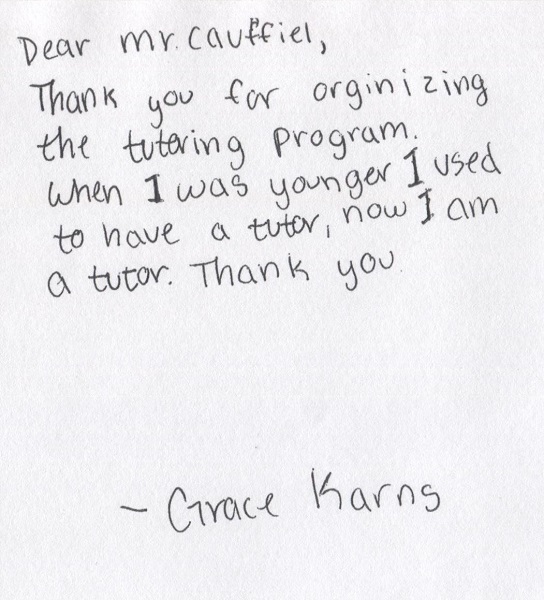 Dear mr. Cauffiel,
Thank you for orginizing
the tutering program.
When I was younger I used
to have a tutor, now I am
a tutor. Thank you.
- Grace Karns